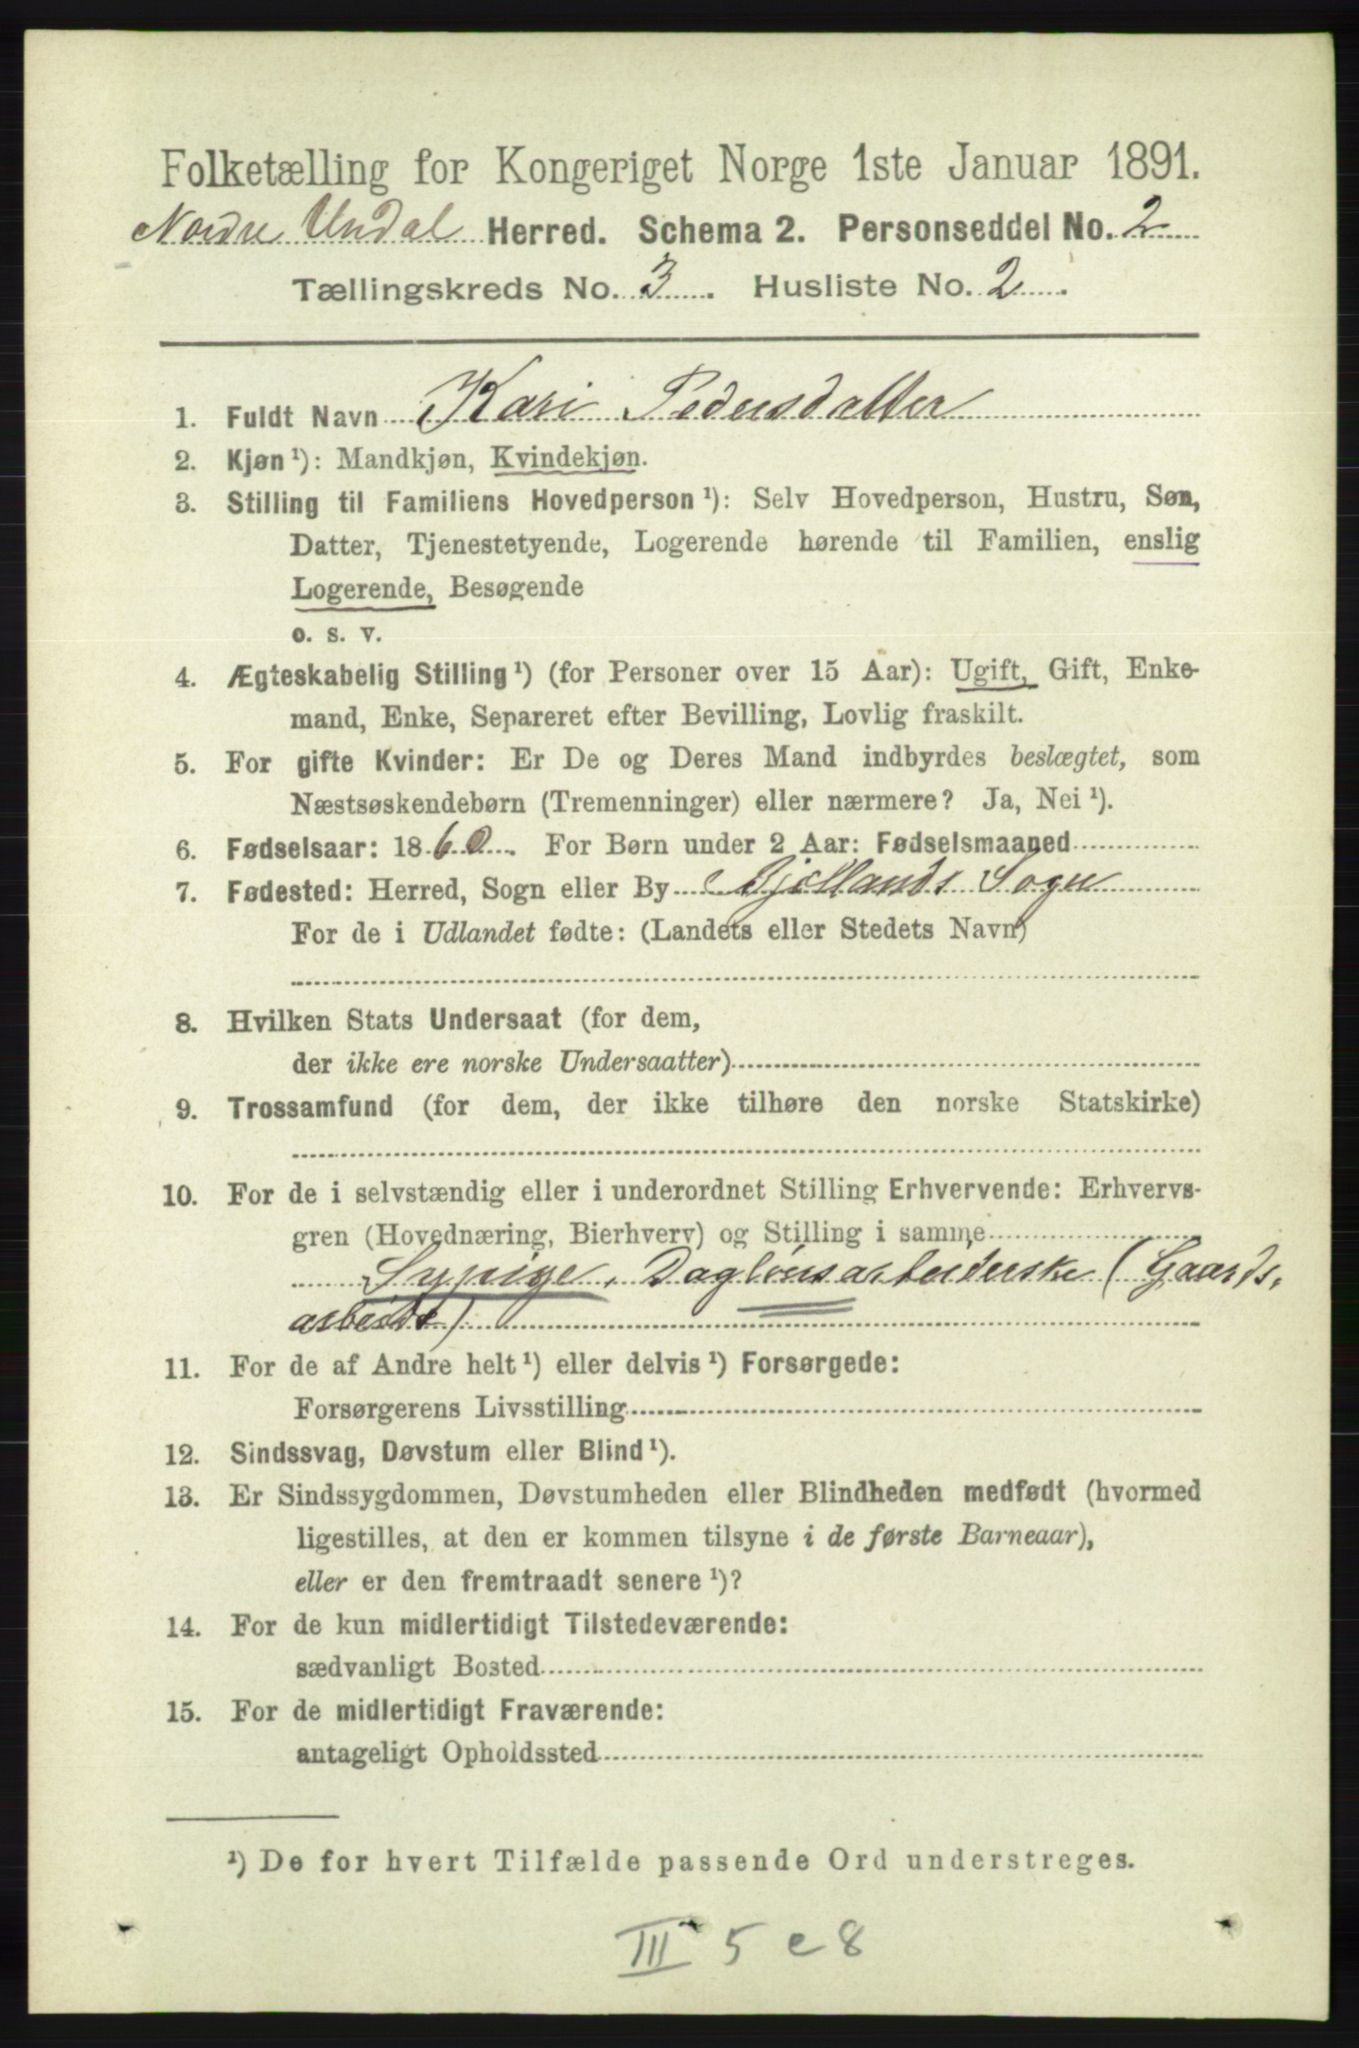 Folketælling for Kongeriget Norge 1ste Januar 1891.
Nordre Undal Herred. Schema 2. Personseddel No. 2
Tællingskreds No. 3. Husliste No. 2.
1. Fuldt Navn Kari Pedersdatter
2. Kjøn ¹): Mandkjøn, Kvindekjøn.
3. Stilling til Familiens Hovedperson ¹): Selv Hovedperson, Hustru, Søn,
Datter, Tjenestetyende, Logerende hørende til Familien, enslig
Logerende, Besøgende
o. s. v.
4. Ægteskabelig Stilling ¹) (for Personer over 15 Aar): Ugift, Gift, Enke-
mand, Enke, Separeret efter Bevilling, Lovlig fraskilt.
5. For gifte Kvinder: Er De og Deres Mand indbyrdes beslægtet, som
Næstsøskendebørn (Tremenninger) eller nærmere? Ja, Nei ¹).
6. Fødselsaar: 1860. For Børn under 2 Aar: Fødselsmaaned
7. Fødested: Herred, Sogn eller By Bjellands Sogn
For de i Udlandet fødte: (Landets eller Stedets Navn)
8. Hvilken Stats Undersaat (for dem,
der ikke ere norske Undersaatter)
9. Trossamfund (for dem, der ikke tilhøre den norske Statskirke)
10. For de i selvstændig eller i underordnet Stilling Erhvervende: Erhvervs-
gren (Hovednæring, Bierhverv) og Stilling i samme
Sypige, Daglønsarbeiderske (Gaards-
arbeide)
11. For de af Andre helt ¹) eller delvis ¹) Forsørgede:
Forsørgerens Livsstilling
12. Sindssvag, Døvstum eller Blind ¹).
13. Er Sindssygdommen, Døvstumheden eller Blindheden medfødt (hvormed
ligestilles, at den er kommen tilsyne i de første Barneaar),
eller er den fremtraadt senere ¹)?
14. For de kun midlertidigt Tilstedeværende:
sædvanligt Bosted
15. For de midlertidigt Fraværende:
antageligt Opholdssted
¹) De for hvert Tilfælde passende Ord understreges.
III 5 e 8